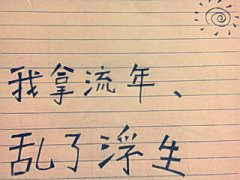 我拿流年、
乱了浮生